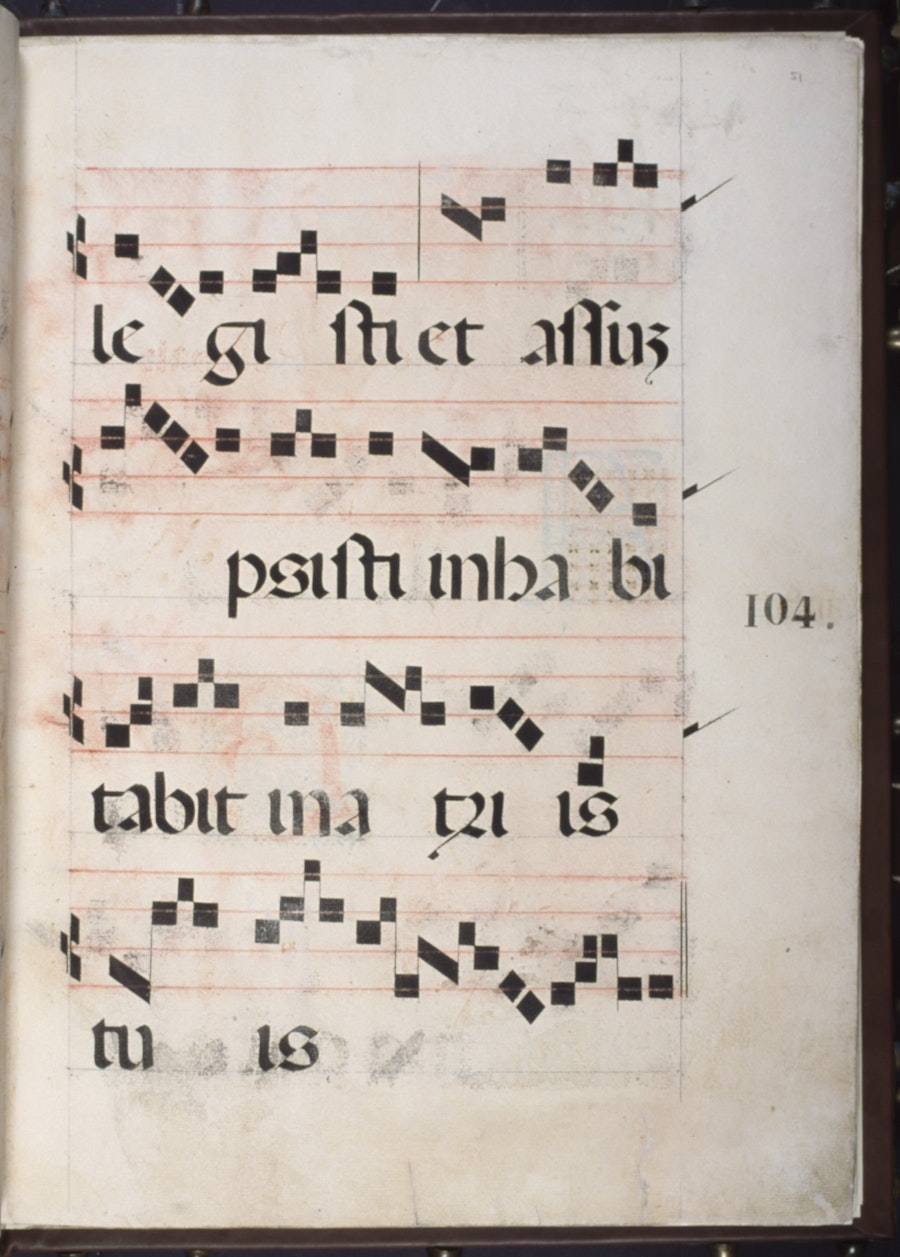 le gi sti et assuz
psisti inha bi
104.
tabit ina tri is
tu is